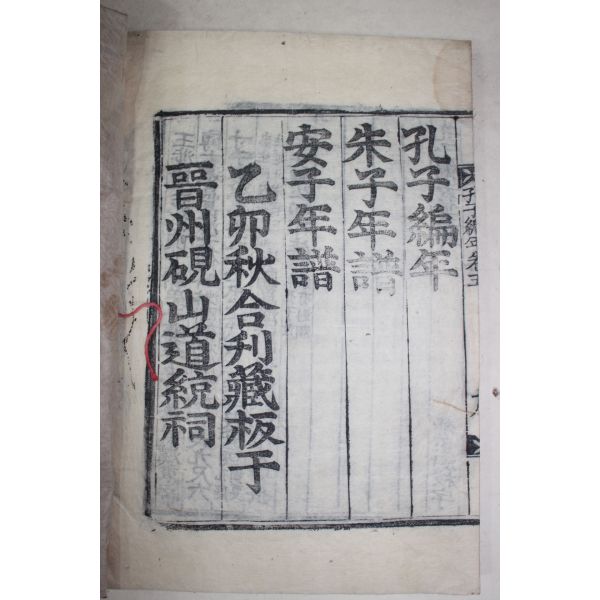 孔子編年
朱子年譜
安子年譜
乙卯秋合刋藏板于
晉州硯山道統祠
孔子編年卷五